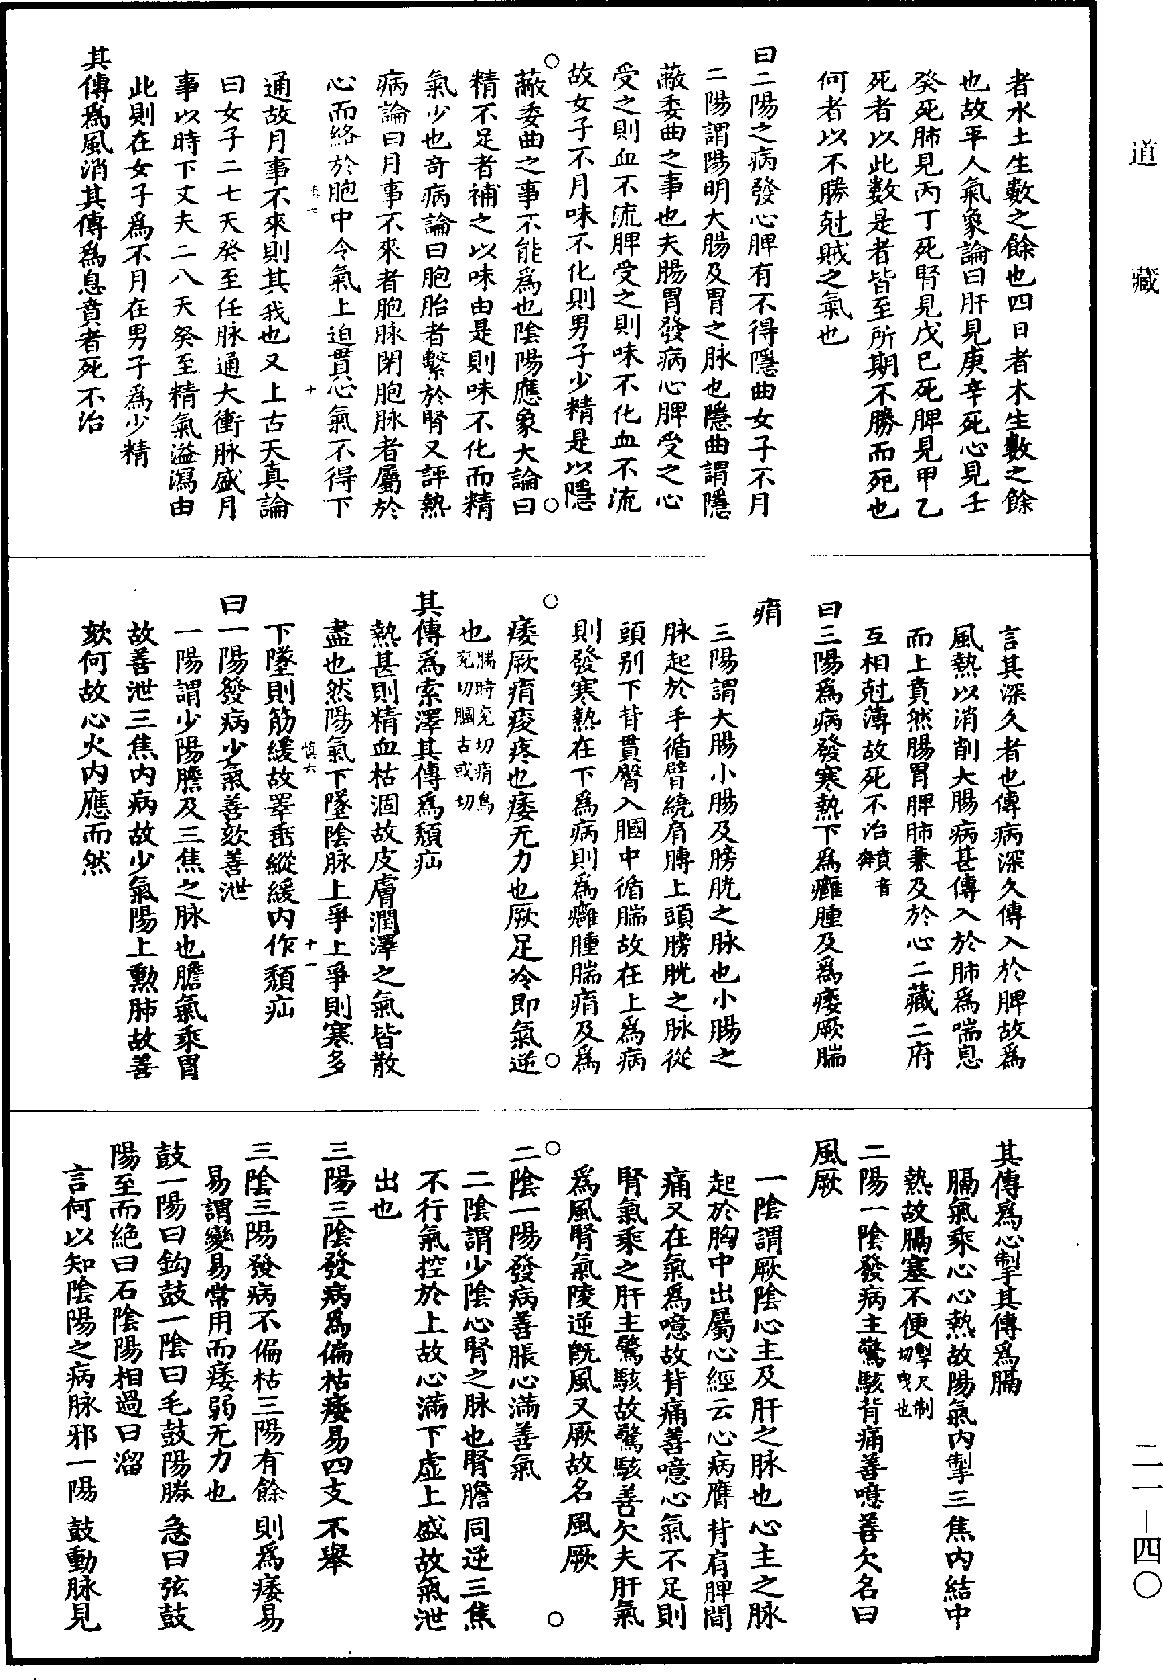 道藏
者水土生數之餘也四日者木生數之餘
也故平人氣象論曰肝見庚辛死心見壬
癸死肺見丙丁死腎見戊巳死脾見甲乙
死者以此數是者皆至所期不勝而死也
何者以不勝尅賊之氣也
曰二陽之病發心脾有不得隱曲女子不月
二陽謂陽明大腸及胃之脉也隱曲謂隱
蔽委曲之事也夫腸胃發病心脾受之心
受之則血不流脾受之則味不化血不流
故女子不月味不化則男子少精是以隱
蔽委曲之事不能爲也陰陽應象大論曰
精不足者補之以味由是則味不化而精
氣少也奇病論曰胞胎者繫於腎又評熱
病論曰月事不來者胞脉閉胞脉者屬於
心而絡於胞中令氣上迫貫心氣不得下
十
通故月事不來則其我也又上古天真論
曰女子二七天癸至任脉通大衝脉盛月
事以時下丈夫二八天癸至精氣溢瀉由
此則在女子爲不月在男子爲少精
其傳爲風消其傳爲息賁者死不治
言其深久者也傳病深久傳入於脾故爲
風熱以消削大腸病甚傳入於肺爲喘息
而上賁然腸胃脾肺兼及於心二藏二府
互相尅薄故死不治賁音奔
曰三陽爲病發寒熱下爲癰腫及爲痿厥腨
㾓
三陽謂大腸小腸及膀胱之脉也小腸之
脉起於手循臂繞肩膊上頭膀胱之脉從
頭别下背貫臀入膕中循腨故在上爲病
則發寒熱在下爲病則爲癰腫腨㾓及爲
痿厥㾓痠疼也痿无力也厥足冷即氣逆
也腨時兖切㾓烏兖切膕古或切
其傳爲索澤其傳爲頹疝
熱甚則精血枯涸故皮膚潤澤之氣皆散
盡也然陽氣下墜陰脉上爭上爭則寒多
慎六 十一
下墜則筋緩故睪垂縱緩内作頹疝
曰一陽發病少氣善欬善泄
一陽謂少陽膽及三焦之脉也膽氣乘胃
故善泄三焦内病故少氣陽上熏肺故善
欬何故心火内應而然
其傳爲心掣其傳爲膈
膈氣乘心心熱故陽氣内掣三焦内結中
熱故膈塞不便掣尺制切曳也
二陽一陰發病主驚駭背痛善噫善欠名曰
風厥
一陰謂厥陰心主及肝之脉也心主之脉
起於胸中出屬心經云心病膺背肩脾間
痛又在氣爲噫故背痛善噫心氣不足則
腎氣乘之肝主驚駭故驚駭善欠夫肝氣
爲風腎氣陵逆旣風又厥故名風厥
二陰一陽發病善脹心滿善氣
二陰謂少陰心腎之脉也腎膽同逆三焦
不行氣控於上故心滿下虛上盛故氣泄
出也
三陽三陰發病爲偏枯痿易四支不舉
三陰三陽發病不偏枯三陽有餘則爲痿易
易謂變易常用而痿弱无力也
鼓一陽曰鈎鼓一陰曰毛鼓陽勝急曰弦鼓
陽至而絶曰石陰陽相過曰溜
言何以知陰陽之病脉邪一陽鼓動脉見
二一—四〇